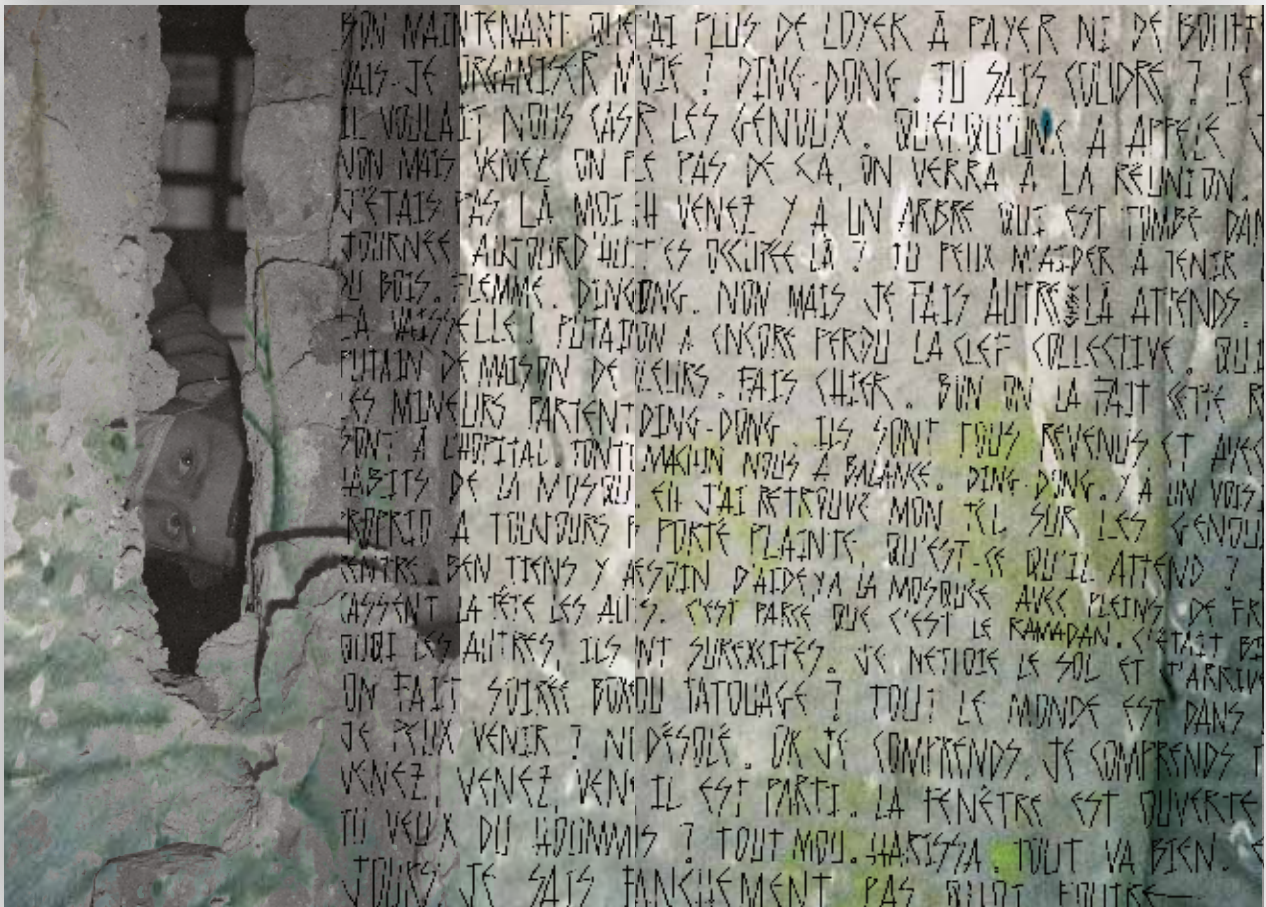 BON MAINTENANT QUE J'AI PLUS DE LOYER À PAYER NI DE
VAIS-JE ORGANISER VIE ? DING-DONG. TU SAIS COUDRE ? LE
IL VOULAIT NOUS CASR LES GENOUX. QUELQU'UN.E A APPELÉ
NON MAIS VENEZ ON PE PAS DE ÇA, ON VERRA À LA RÉUNION.
J'ÉTAIS PAS LÀ MOI. VENEZ Y A UN ARBRE QUI EST TOMBÉ DAN
JOURNÉE AUJOURD'HUI T'ES OCCUPÉE LÀ ? TU PEUX M'AIDER À TENIR
DU BOIS. FLEMME. DING DONG. NON MAIS JE FAIS AUTRE LÀ ATTENDS.
LA VAISSELLE ! PUTAIN ON A ENCORE PERDU LA CLEF COLLECTIVE. QUI
PUTAIN DE MAISON DE FAIS CHIER. BON ON LA FAIT CETTE R
LES MINEURS PARTENT DING-DONG. ILS SONT TOUS REVENUS ET AVEC
SONT À L'HOPITAL. TONTON MACHIN NOUS A BALANCÉ. DING-DONG. Y A UN VOIS
HABITS DE LA MOSQU EH J'AI RETROUVÉ MON TÉL SUR LES GENOU
PROPRIO A TOUJOURS P PORTÉ PLAINTE, QU'EST-CE QU'IL ATTEND ?
RENTRE. BEN TIENS Y A ESOIN D'AIDE, Y A LA MOSQUÉE AVEC PLEINS DE FR
CASSENT LA TÊTE LES AU S. C'EST PARCE QUE C'EST LE RAMADAN. C'ÉTAIT BI
QUOI LES AUTRES, ILS NT SUREXCITÉS. JE NETTOIE LE SOL ET T'ARRIVE
ON FAIT SOIRÉE BOX OU TATOUAGE ? TOUT LE MONDE EST DANS
JE PEUX VENIR ? N DÉSOLÉ. OK JE COMPRENDS. JE COMPRENDS
VENEZ, VENEZ, VEN IL EST PARTI. LA FENÊTRE EST OUVERTE
TU VEUX DU S ? TOUT MOU. HARISSA. TOUT VA BIEN.
JOURS. JE SAIS PAS QUOI FOUTRE—